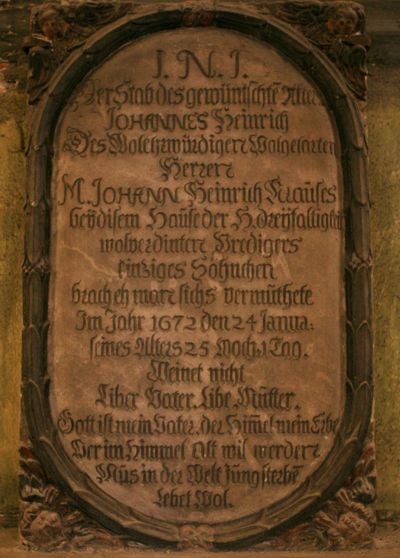 I. N. I.
Der Stab des gewüntschtē Alters
JOHANNES Heinrich
Des Wolehrwürdigen Wolgelarten
Herren
M. JOHANN Heinrich Krauses
beÿ disem Hause der H. dreÿfaltigkeit
wolverdinten Predigers
einziges Söhnchen
brach eh man sichs vermüthete
Im Jahr 1672 den 24 Janua:
seines Alters 25 Woch. 1 Tag.
Weinet nicht
Liber Vater. Libe Mutter.
Gott ist mein Vater, der Him̄el mein Erbe
Wer im Himmel Alt wil werden
Mus in der Welt Jung sterbē
Lebet Wol.